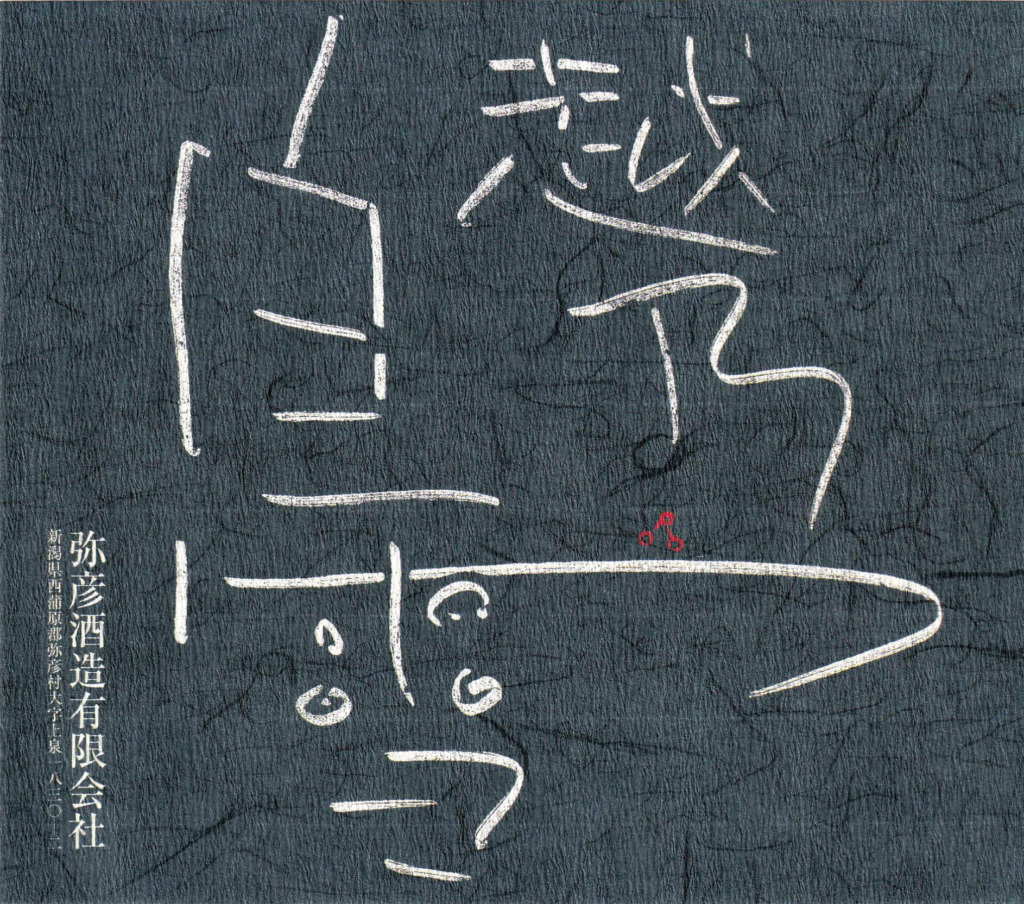 越乃
白雪
弥彦酒造有限会社
新潟県西蒲原郡弥彦村大字上泉一八三〇